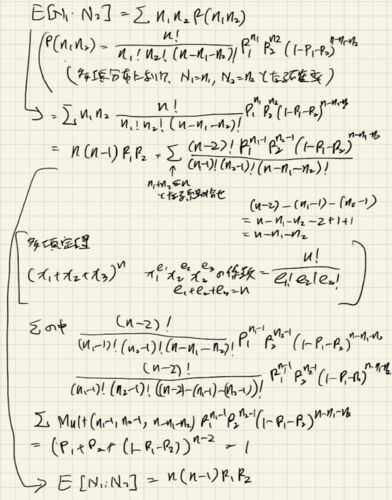 E[N₁·N₂] = Σ n₁n₂ P(n₁n₂)
P(n₁n₂) = n! / (n₁! n₂! (n-n₁-n₂)!) P₁^n₁ P₂^n₂ (1-P₁-P₂)^(n-n₁-n₂)
(多項分布において、N₁=n₁, N₂=n₂となる確率)
= Σ n₁n₂ n! / (n₁! n₂! (n-n₁-n₂)!) P₁^n₁ P₂^n₂ (1-P₁-P₂)^(n-n₁-n₂)
= n(n-1) P₁P₂ · Σ (n-2)! P₁^(n₁-1) P₂^(n₂-1) (1-P₁-P₂)^(n-n₁-n₂) / ((n₁-1)! (n₂-1)! (n-n₁-n₂)!)
n₁+n₂≤n
となる
(n-2) - (n₁-1) - (n₂-1)
= n-n₁-n₂-2+1+1
= n-n₁-n₂
多項定理
(x₁+x₂+x₃)^n x₁^e₁ x₂^e₂ x₃^e₃ の係数 = n! / (e₁! e₂! e₃!)
e₁+e₂+e₃=n
Σの中 (n-2)! / ((n₁-1)! (n₂-1)! (n-n₁-n₂)!) P₁^(n₁-1) P₂^(n₂-1) (1-P₁-P₂)^(n-n₁-n₂)
(n-2)! / ((n₁-1)! (n₂-1)! ((n-2)-(n₁-1)-(n₂-1))!) P₁^(n₁-1) P₂^(n₂-1) (1-P₁-P₂)^(n-n₁-n₂)
Σ Mult(n₁-1, n₂-1, n-n₁-n₂) P₁^(n₁-1) P₂^(n₂-1) (1-P₁-P₂)^(n-n₁-n₂)
= (P₁+P₂+(1-P₁-P₂))^(n-2) = 1
E[N₁·N₂] = n(n-1)P₁P₂